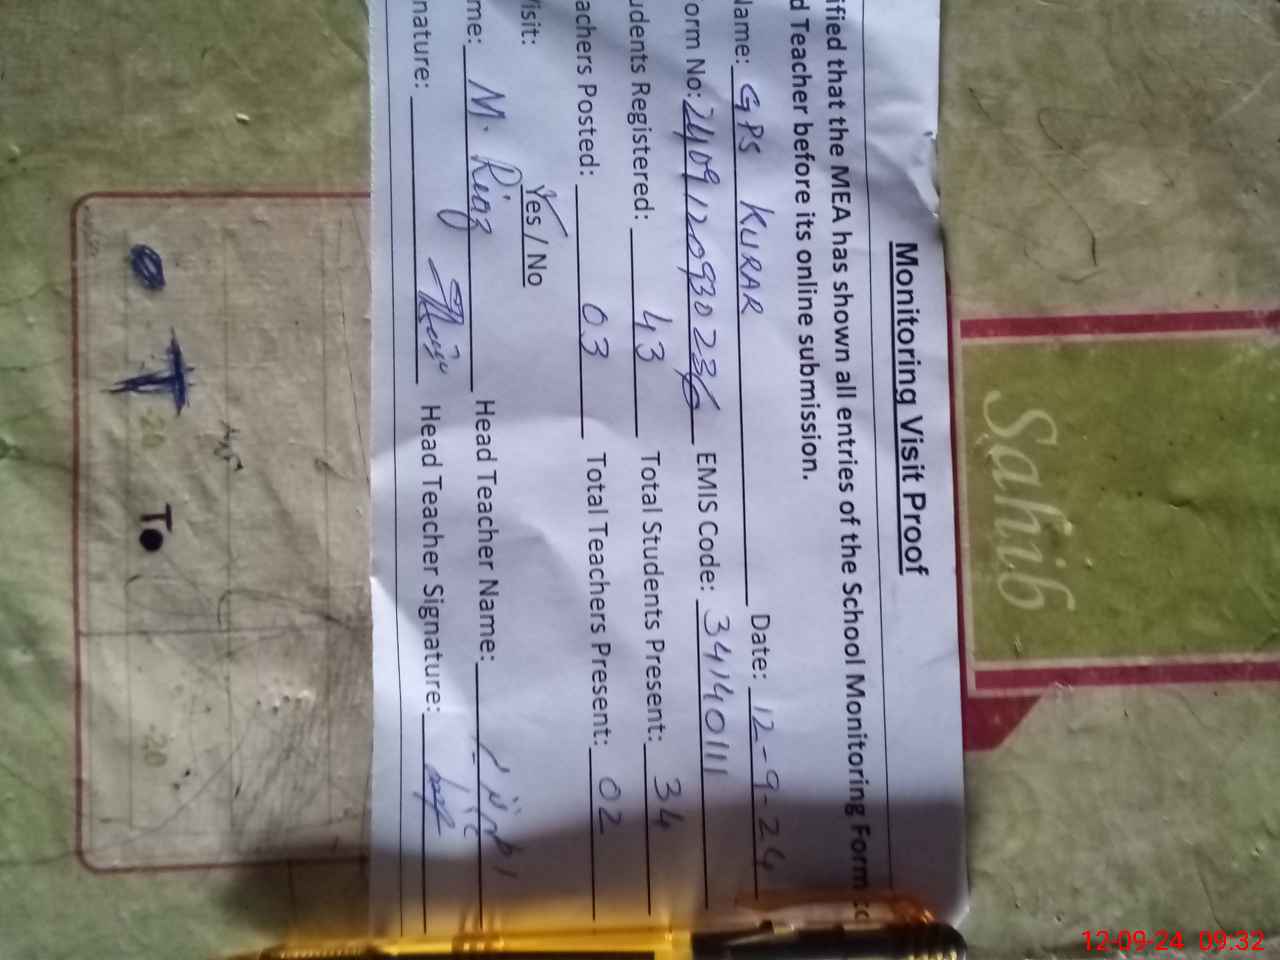 Monitoring Visit Proof
ified that the MEA has shown all entries of the School Monitoring Form to
d Teacher before its online submission.
Name: GPS KURAR Date: 12-9-24
orm No: 2409120930236 EMIS Code: 34140111
udents Registered: 43 Total Students Present: 34
achers Posted: 03 Total Teachers Present: 02
isit: Yes / No
me: M. Riaz Head Teacher Name:
nature: Head Teacher Signature:
Sahib
T
To
20
20
12-09-24 09:32